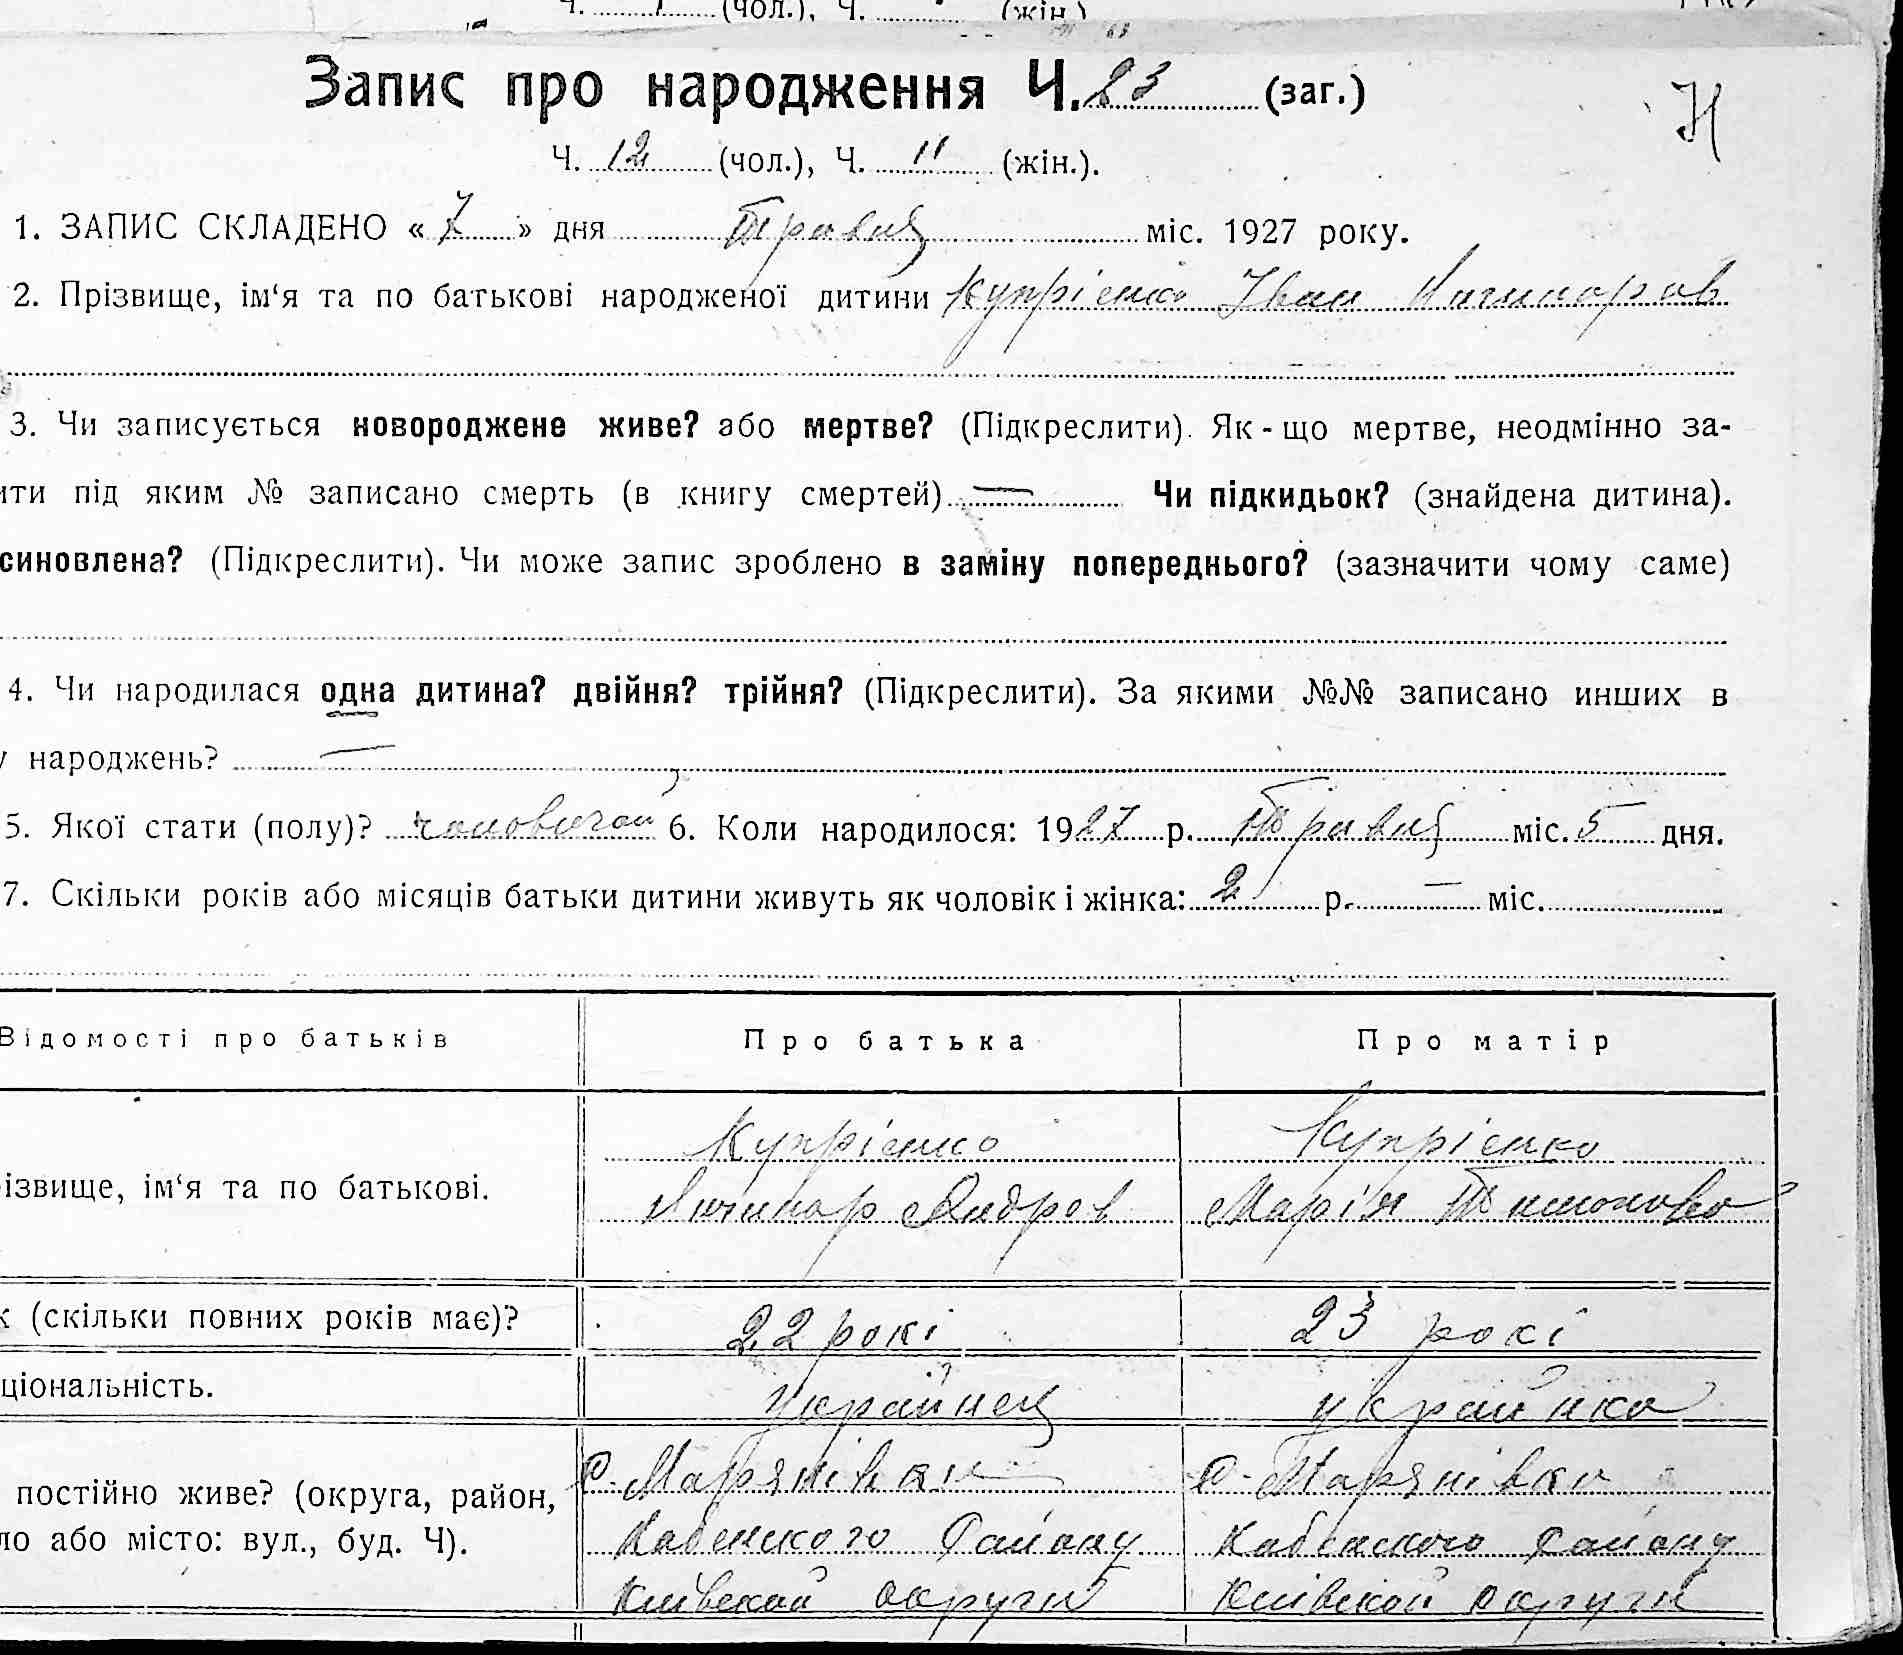 Запис про народження Ч. 23 (заг.)
Н
Ч. 12 (чол.), Ч. 11 (жін.).
1. ЗАПИС СКЛАДЕНО « 7 » дня Травня міс. 1927 року.
2. Прізвище, ім'я та по батькові народженої дитини Купрієнко Іван
3. Чи записується новороджене живе? або мертве? (Підкреслити). Як-що мертве, неодмінно за-
ити під яким № записано смерть (в книгу смертей) — Чи підкидьок? (знайдена дитина).
синовлена? (Підкреслити). Чи може запис зроблено в заміну попереднього? (зазначити чому саме)
4. Чи народилася одна дитина? двійня? трійня? (Підкреслити). За якими №№ записано инших в
у народжень? —
5. Якої стати (полу)? чоловичой 6. Коли народилося: 1927 р. Травня міс. 5 дня.
7. Скільки років або місяців батьки дитини живуть як чоловік і жінка: 2 р. — міс.
Відомості про батьків Про батька Про матір
Купрієнко Купрієнко
різвище, ім'я та по батькові. Андрев Марія Тимоново
к (скільки повних років має)? 22 рокі 23 рокі
ціональність. українец українка
постійно живе? (округа, район, с. Марянівки с. Марянівки
ло або місто: вул., буд. Ч). Района Района
Київской округи Київской округи